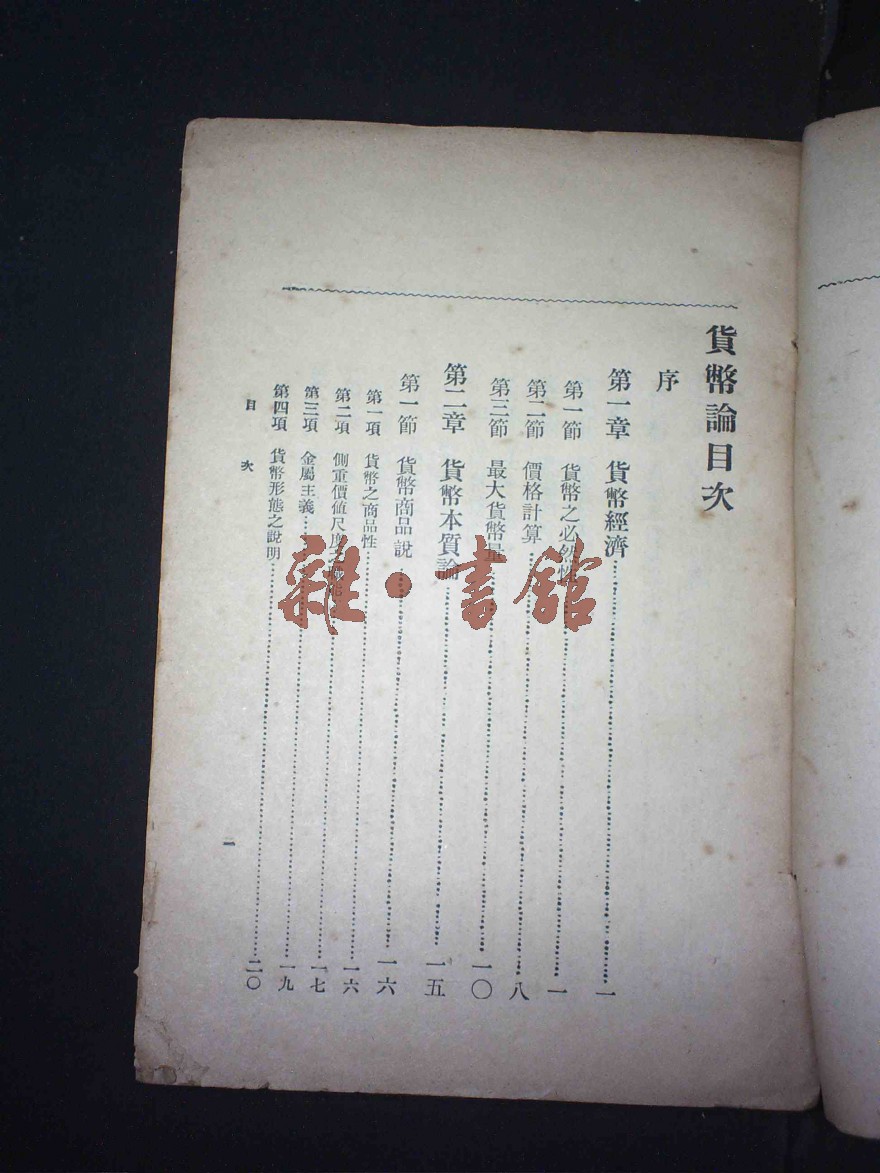 貨幣論目次
序
第一章 貨幣經濟……一
第一節 貨幣之必然性……一
第二節 價格計算……八
第三節 最大貨幣量……一〇
第二章 貨幣本質論……一五
第一節 貨幣商品說……一六
第一項 貨幣之商品性……一六
第二項 側重價值尺度之……一七
第三項 金屬主義……一九
第四項 貨幣形態之說明……二〇
目次
一
雜·書館